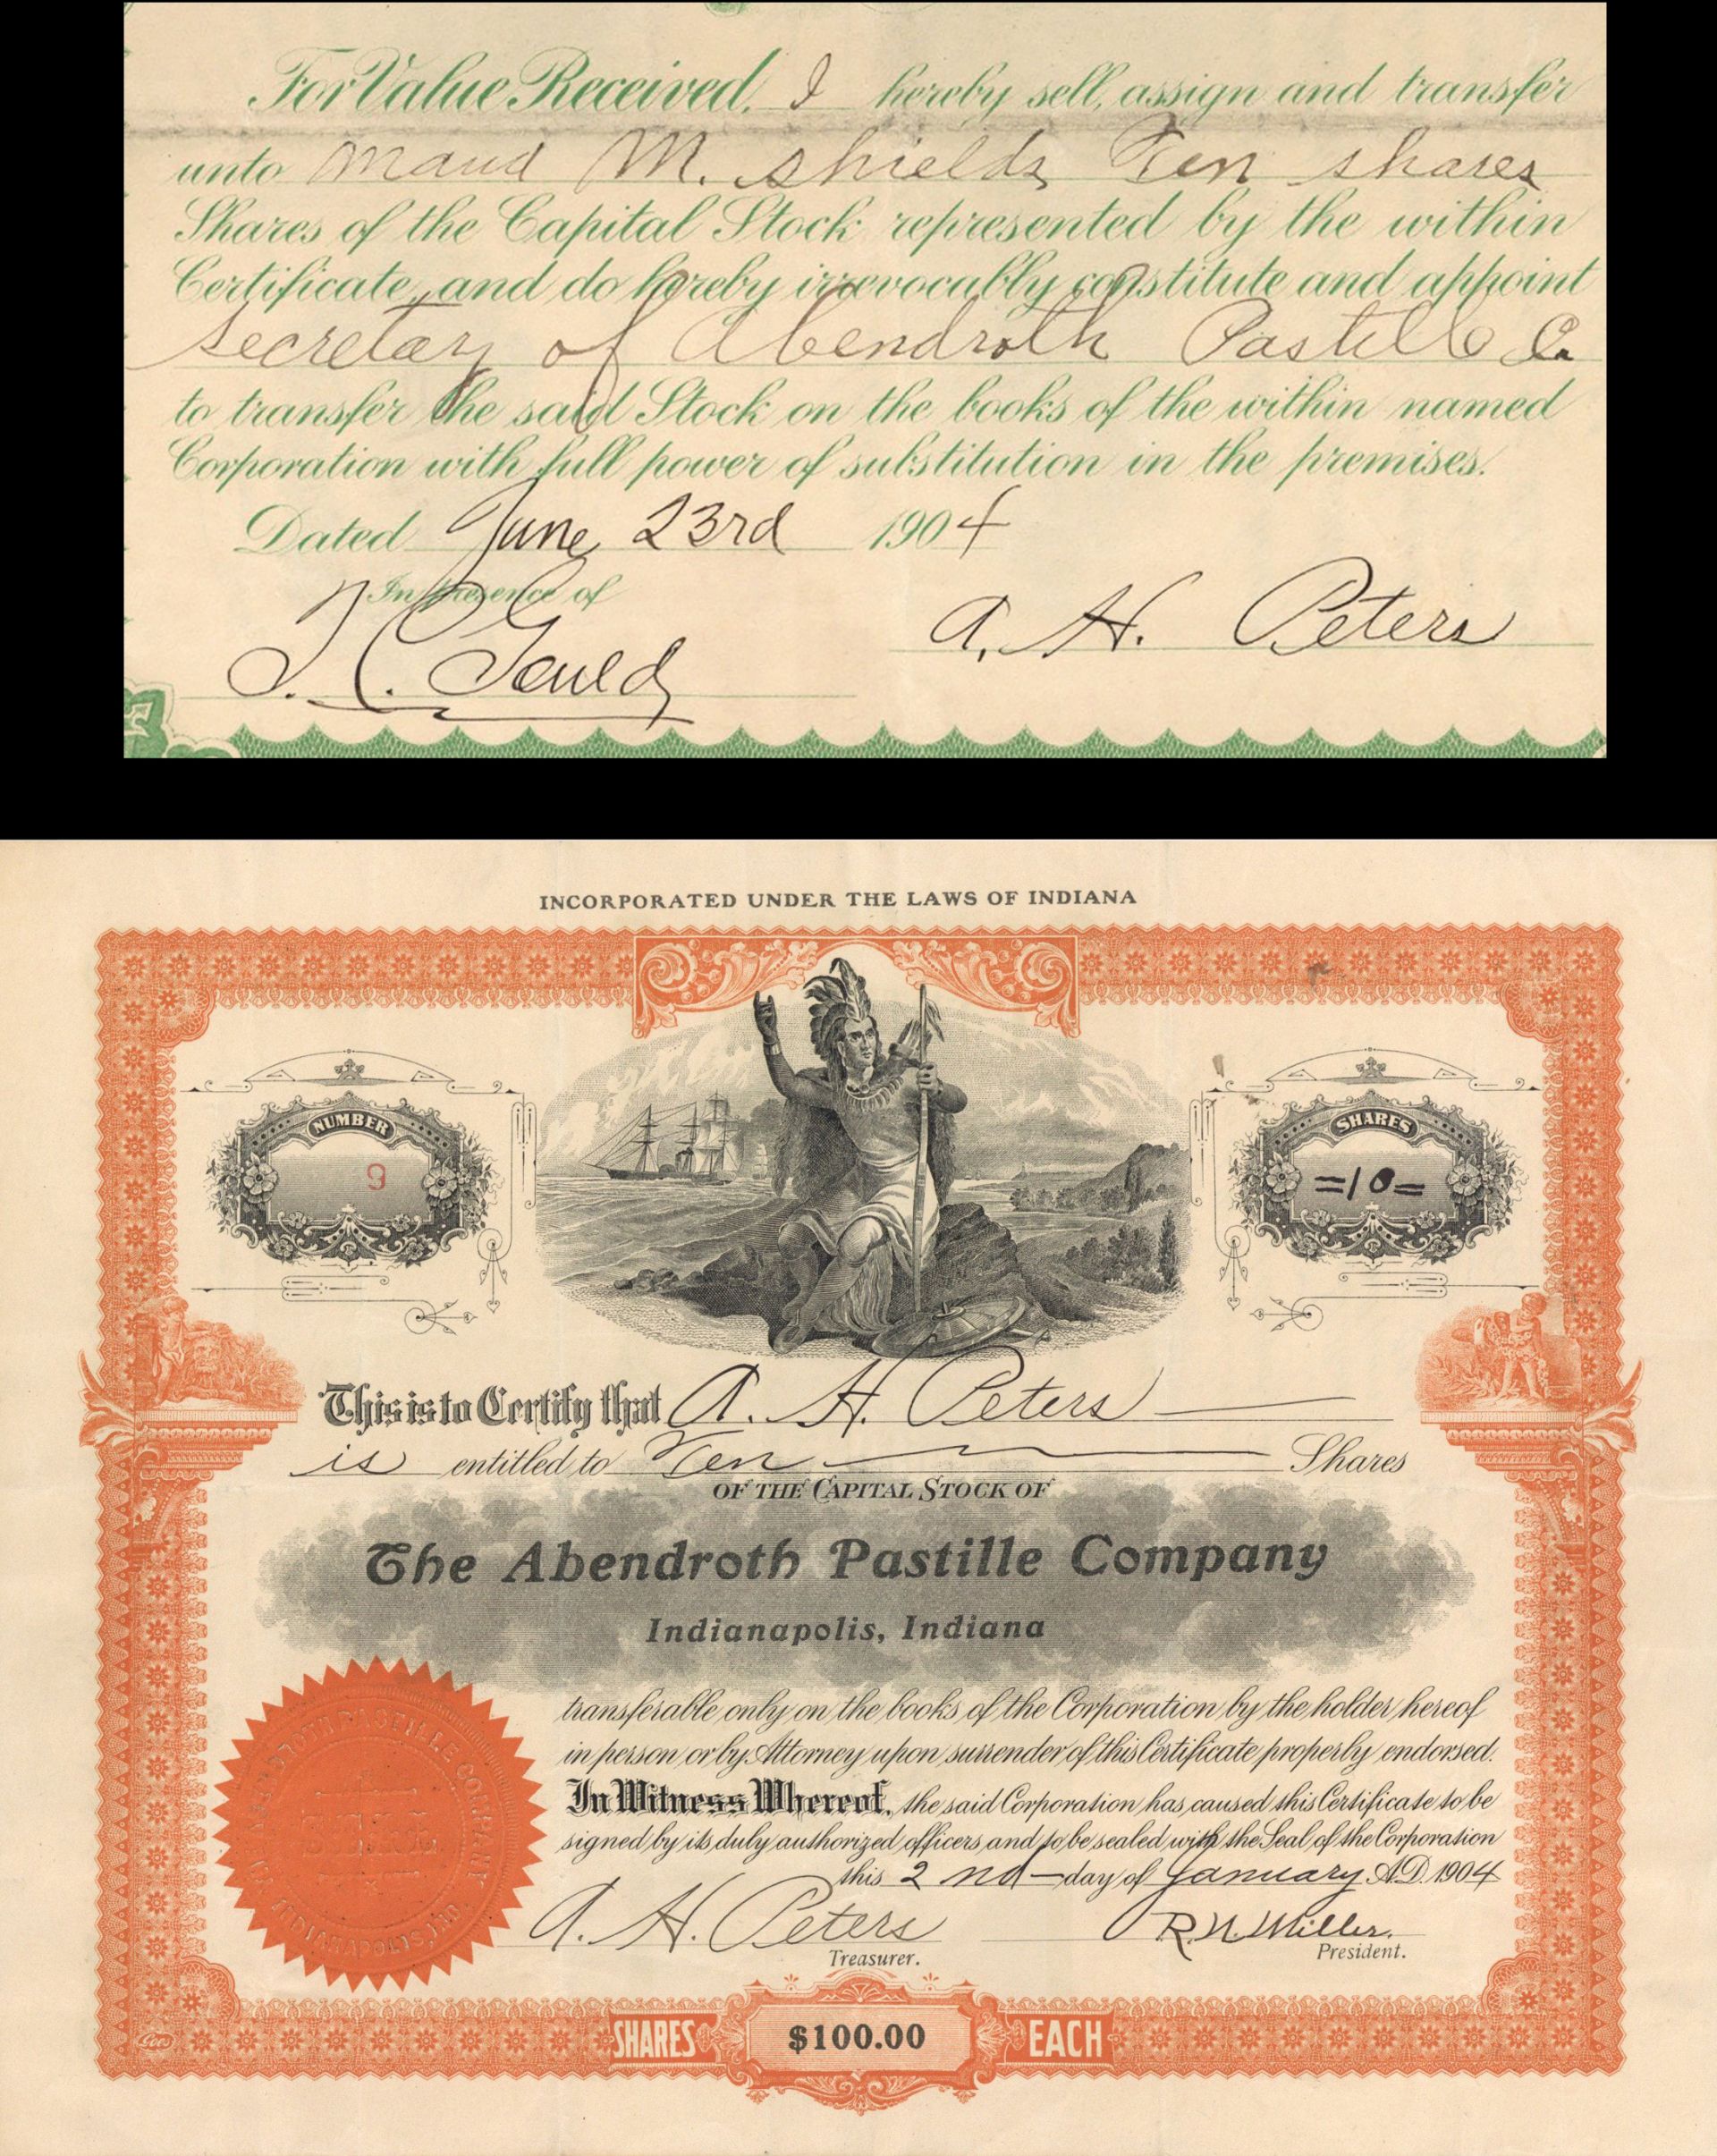 For Value Received, I hereby sell, assign and transfer
unto Maud M. Shields Ten shares
Shares of the Capital Stock represented by the within
Certificate, and do hereby irrevocably constitute and appoint
secretary of Abendroth Pastille Co.
to transfer the said Stock on the books of the within named
Corporation with full power of substitution in the premises.
Dated June 23rd 1904
In presence of
A. H. Peters
INCORPORATED UNDER THE LAWS OF INDIANA
NUMBER
9
SHARES
=10=
This is to Certify that A. H. Peters
is entitled to Ten Shares
OF THE CAPITAL STOCK OF
The Abendroth Pastille Company
Indianapolis, Indiana
transferable only on the books of the Corporation by the holder hereof
in person or by Attorney upon surrender of this Certificate properly endorsed.
In Witness Whereof, the said Corporation has caused this Certificate to be
signed by its duly authorized officers and to be sealed with the Seal of the Corporation
this 2nd day of January A.D. 1904
A. H. Peters
Treasurer.
R. N. Miller.
President.
SHARES $100.00 EACH